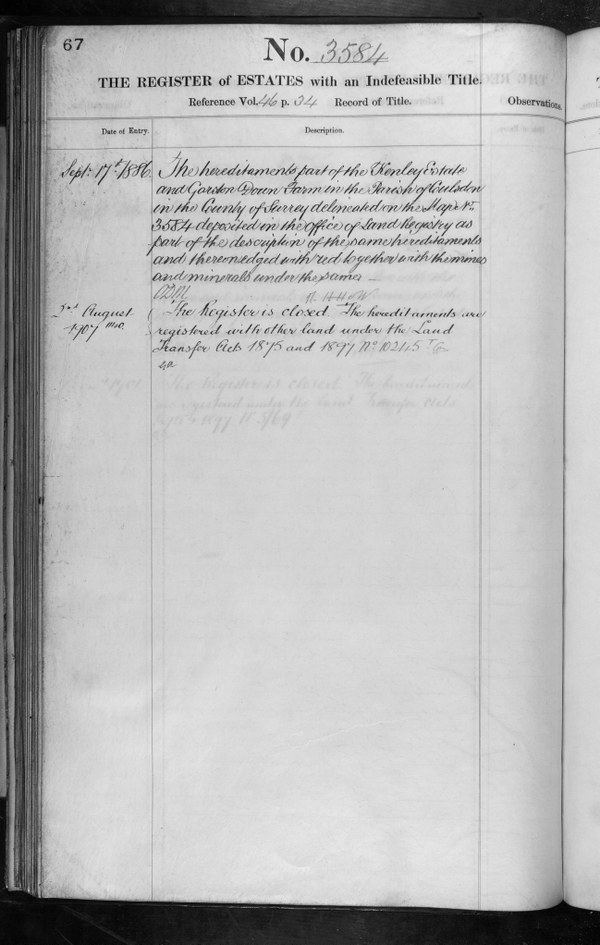 67
No. 3584
THE REGISTER of ESTATES with an Indefeasible Title.
Reference Vol. 46 p. 34 Record of Title.
Observations
Date of Entry.
Description.
Sept. 17th 1886
The hereditaments part of the Kenley Estate
and Garston Down Farm in the Parish of Coulsdon
in the County of Surrey delineated on the Map No.
3584 deposited in the office of Land Registry as
part of the description of the same hereditaments
and thereon edged with red together with the mines
and minerals under the same
August
1907
The Register is closed. The hereditaments are
registered with other land under the Land
Transfer Acts 1875 and 1897 No. 102145
The Register is closed. The hereditaments
are registered under the Land Transfer Acts